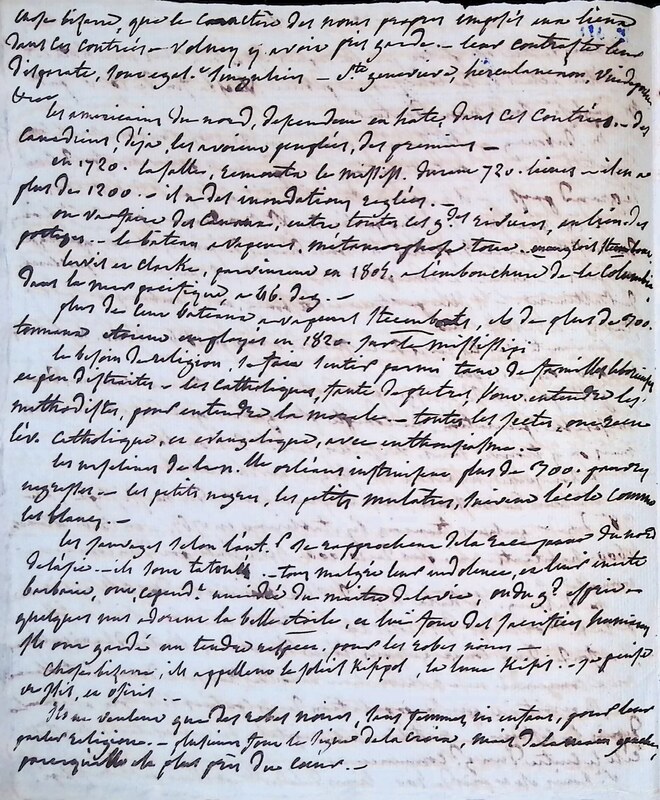 chose bizarre, que le caractère des noms propres imposés aux lieux
dans ces contrées — volney y avoit pris garde. — leur contraste leur
disparate, sont egal.t singuliers — Ste genevieve, herculaneum,
les americains du nord, dependent en traite, dans ces contrées. — des
canadiens, déja, les avoient peuplées, des premiers —
en 1720. lasalles, remonta le missis. durant 720. lieues — il en a
plus de 1200. — il a des inondations reglées. —
on va faire des canaux, entre toutes ces gdes rivières, au lieu des
portages. — le bateau a vapeur, métamorphose tout. en anglois steamboat
lewis et clarke, parvinrent en 1805. a l'embouchure de la Columbia
dans la mer pacifique, a 46. deg. —
plus de cent bateaux a vapeur steemboats, et de plus de 700.
tonneaux etoient employés en 1820. sur le mississipi
le besoin de religion, se fait sentir parmi tant de familles
et peu distraites — les catholiques, faute de pretres, vont entendre les
methodistes, pour entendre la morale — toutes les sectes, ont recu
l'év. catholique, et evangelique, avec enthousiasme. —
les ursulines de la n.lle orléans instruisent plus de 300. pauvres
negresses. — les petits negres, les petits mulatres, suivent l'école comme
les blancs. —
les sauvages selon l'aut. se rapprochent de la race du nord
de l'asie — ils sont — tous malgré leur indolence, et leur
barbarie, ont, cepend.t une idée du maitre de la vie, ou du gd esprit —
quelques uns adorent la belle etoile, et lui font des sacrifices humains
ils ont gardé un tendre respect, pour les robes noires —
chose bizarre, ils appellent le soleil Kippol, la lune Kipil. —
et
ils ne veulent que des robes noires, sans femmes, ni enfans, pour leur
parler religion. — plusieurs font le signe de la croix, mais de la main gauche,
parcequ'elle est plus près du cœur. —